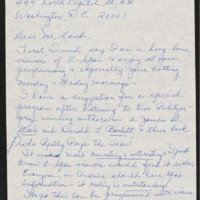 444 North Capitol St, NW
Washington, D.C. 20001
Dear Mr. Lamb,
First I must say I am a long-time
viewer of C-Span & enjoy all your
programming & especially your
Monday & Friday mornings.
I have a suggestion for a special
program after listening to two Pulitzer
prize winning authors James B.
Steele and Donald L. Barlett & their book
Who Really Pays the Taxes?
It was most revealing & interesting. I
C-Span viewers would find it
Everyone in America should have this
information & it really is outstanding!
Hope this can be programmed